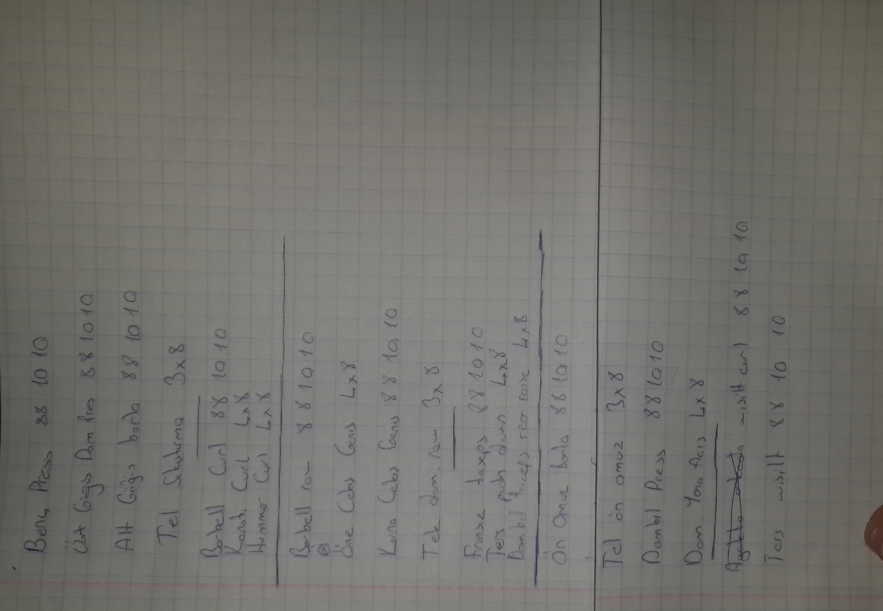 Benç Press 88 10 10
Üst Göğüs Dam Pres 88 10 10
Alt Göğüs barla 88 10 10
Tel Sıkıştırma 3x8
Barbell Curl 88 10 10
Curl 4x8
Hummer Curl 4x8
Barbell row 88 10 10
Öne Cabs Geniş 4x8
Cabs Geniş 88 10 10
Tek dam. row 3x8
Triseps 88 10 10
Ters push down 4x8
Dambıl Triceps 4x8
Ön Omuz barla 88 10 10
Tel ön omuz 3x8
Dambıl Press 88 10 10
Dam Yana Acış 4x8
wisılt curl 88 10 10
Ters wisılt 88 10 10